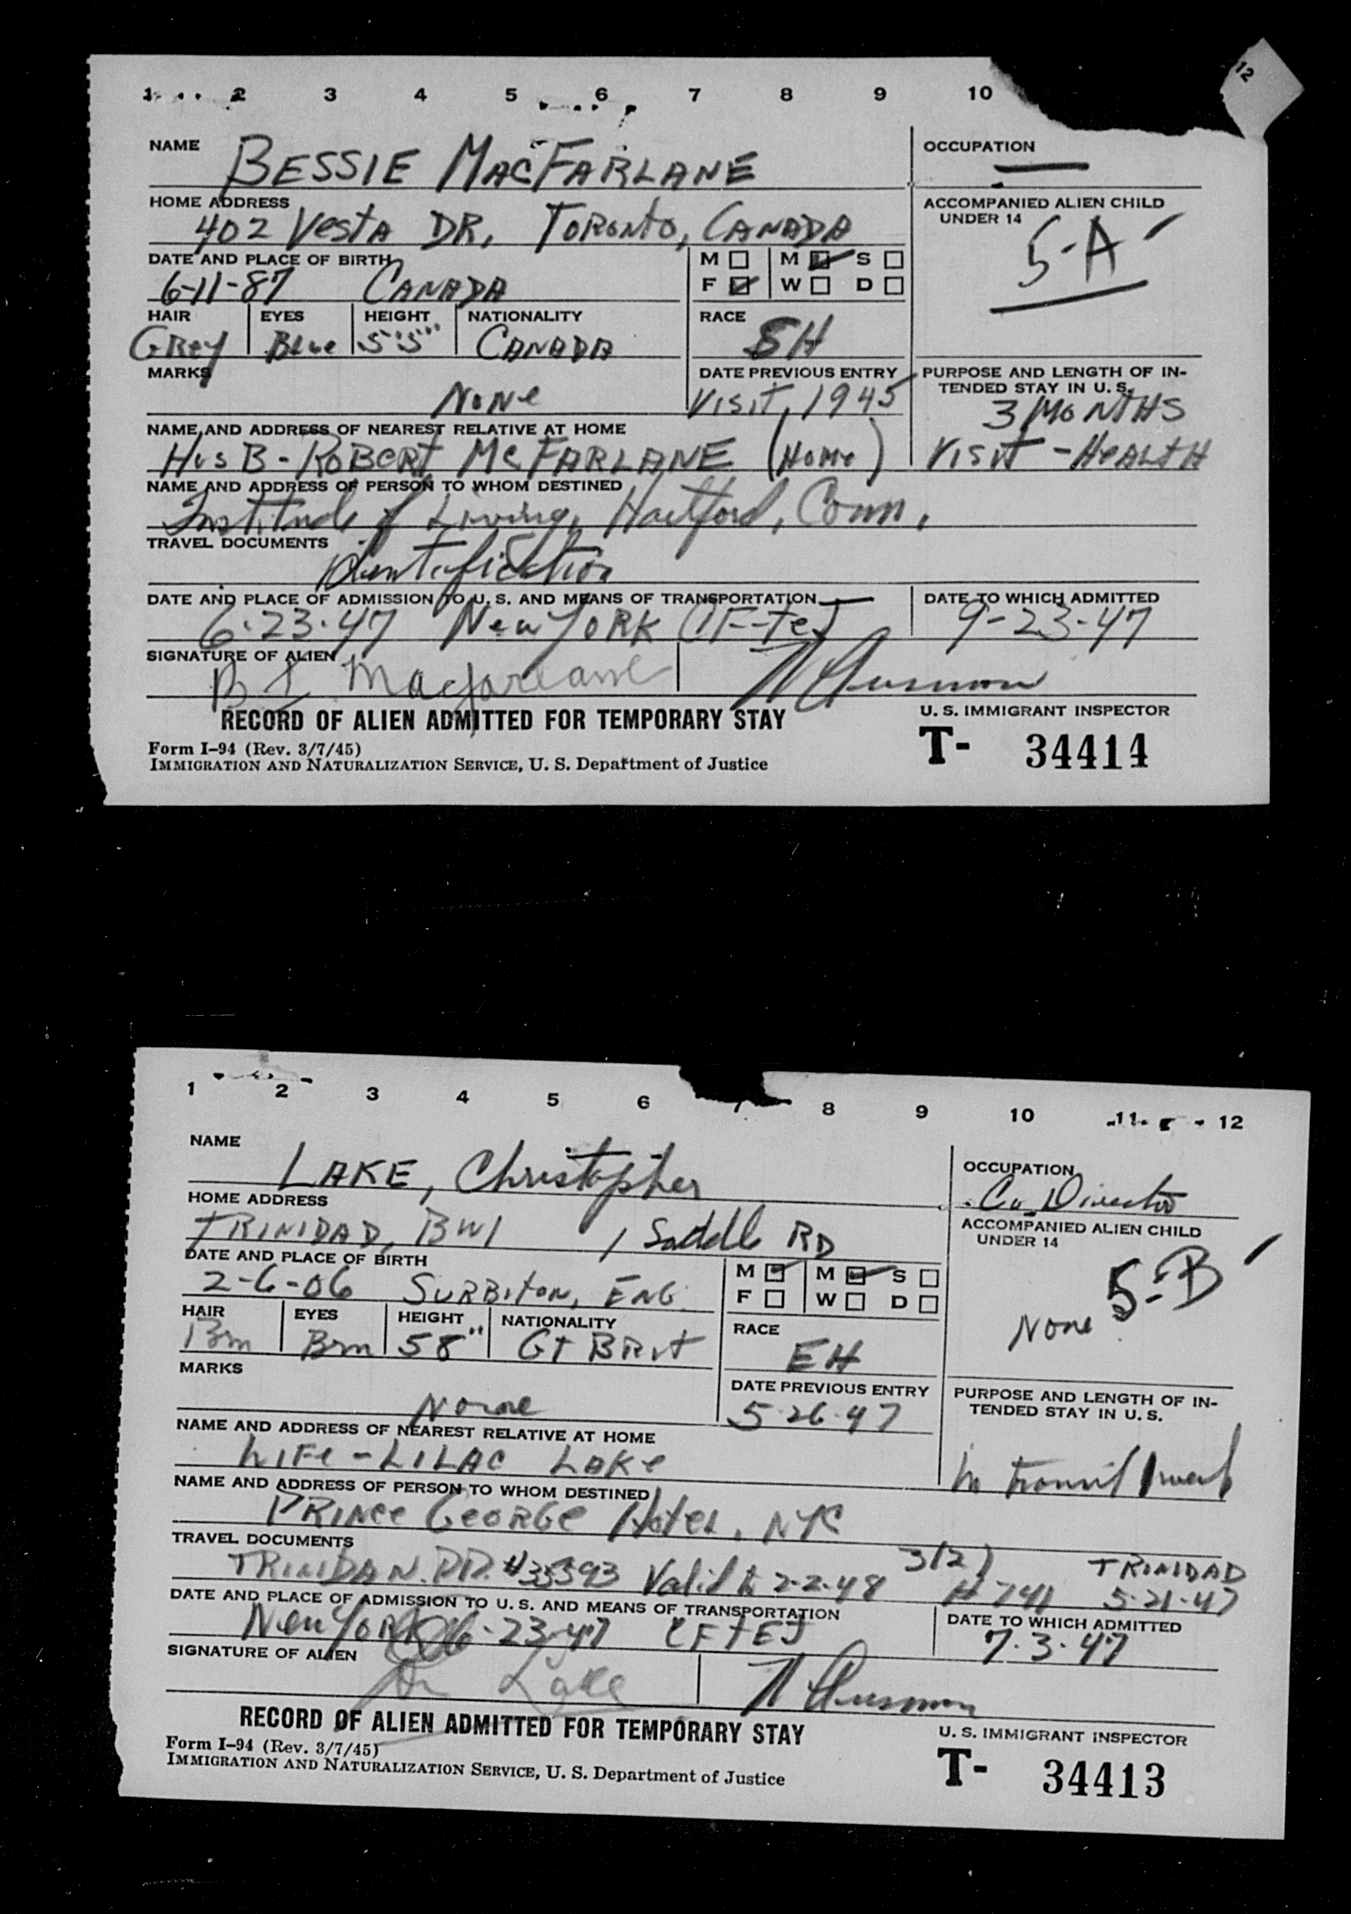 1 2 3 4 5 6 7 8 9 10
12
NAME BESSIE MACFARLANE
OCCUPATION —
HOME ADDRESS 402 Vesta DR, TORONTO, CANADA
ACCOMPANIED ALIEN CHILD
UNDER 14
5-A
DATE AND PLACE OF BIRTH 6-11-87 CANADA
M M S
F W D
HAIR EYES HEIGHT NATIONALITY RACE
Grey Blue 5'5" CANADA SH
MARKS None
DATE PREVIOUS ENTRY
Visit, 1945
PURPOSE AND LENGTH OF IN-
TENDED STAY IN U. S.
3 MONTHS
VISIT - HEALTH
NAME AND ADDRESS OF NEAREST RELATIVE AT HOME
HusB - ROBERT McFARLANE (Home)
NAME AND ADDRESS OF PERSON TO WHOM DESTINED
Institute of Living, Hartford, Conn.
TRAVEL DOCUMENTS Identification
DATE AND PLACE OF ADMISSION TO U. S. AND MEANS OF TRANSPORTATION
6-23-47 New YORK CF-TEJ
DATE TO WHICH ADMITTED
9-23-47
SIGNATURE OF ALIEN
B L Macfarlane
RECORD OF ALIEN ADMITTED FOR TEMPORARY STAY
U. S. IMMIGRANT INSPECTOR
Form I-94 (Rev. 3/7/45)
IMMIGRATION AND NATURALIZATION SERVICE, U. S. Department of Justice
T- 34414
1 2 3 4 5 6 7 8 9 10 11 12
NAME LAKE, Christopher
OCCUPATION
Co. Director
HOME ADDRESS
TRINIDAD, BWI 1 Saddle RD
ACCOMPANIED ALIEN CHILD
UNDER 14
5-B
None
DATE AND PLACE OF BIRTH
2-6-06 SURBITON, ENG.
M M S
F W D
HAIR EYES HEIGHT NATIONALITY RACE
Brn Brn 58" Gt BRit EH
MARKS
None
DATE PREVIOUS ENTRY
5-26-47
PURPOSE AND LENGTH OF IN-
TENDED STAY IN U. S.
In transit 1 week
NAME AND ADDRESS OF NEAREST RELATIVE AT HOME
WIFE - LILAC LAKE
NAME AND ADDRESS OF PERSON TO WHOM DESTINED
PRINCE GEORGE Hotel, NYC
TRAVEL DOCUMENTS 3(2) TRINIDAD
TRINIDAN. PP. #35393 Valid to 2-2-48 # 741 5-21-47
DATE AND PLACE OF ADMISSION TO U. S. AND MEANS OF TRANSPORTATION
New YORK 6-23-47 CFTEJ
DATE TO WHICH ADMITTED
7-3-47
SIGNATURE OF ALIEN
Lake
RECORD OF ALIEN ADMITTED FOR TEMPORARY STAY
U. S. IMMIGRANT INSPECTOR
Form I-94 (Rev. 3/7/45)
IMMIGRATION AND NATURALIZATION SERVICE, U. S. Department of Justice
T- 34413